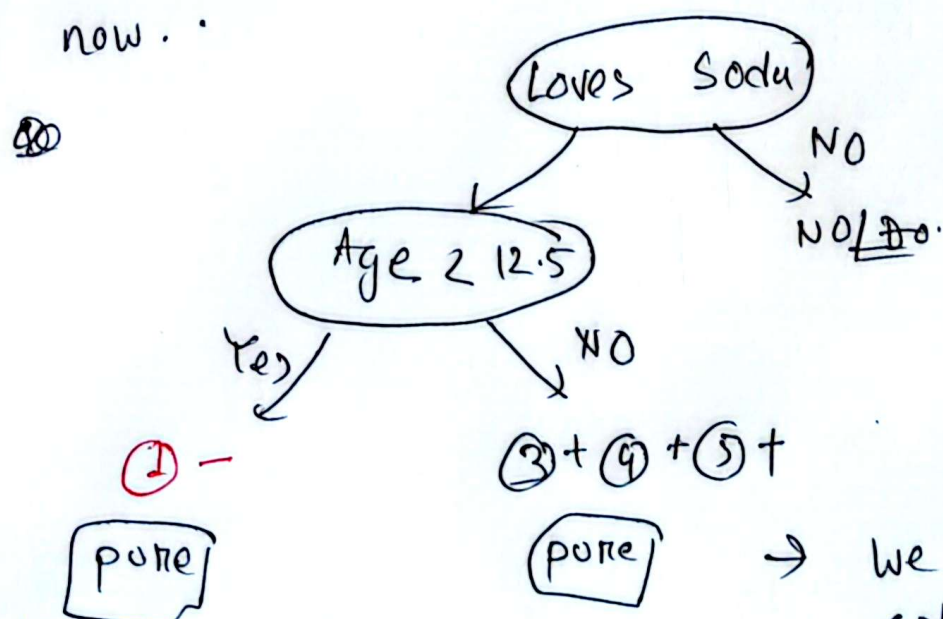 now..
Loves Soda
NO
NO/
Age < 12.5
Yes
NO
① -
③+ ④+ ⑤+
pure
pure → we